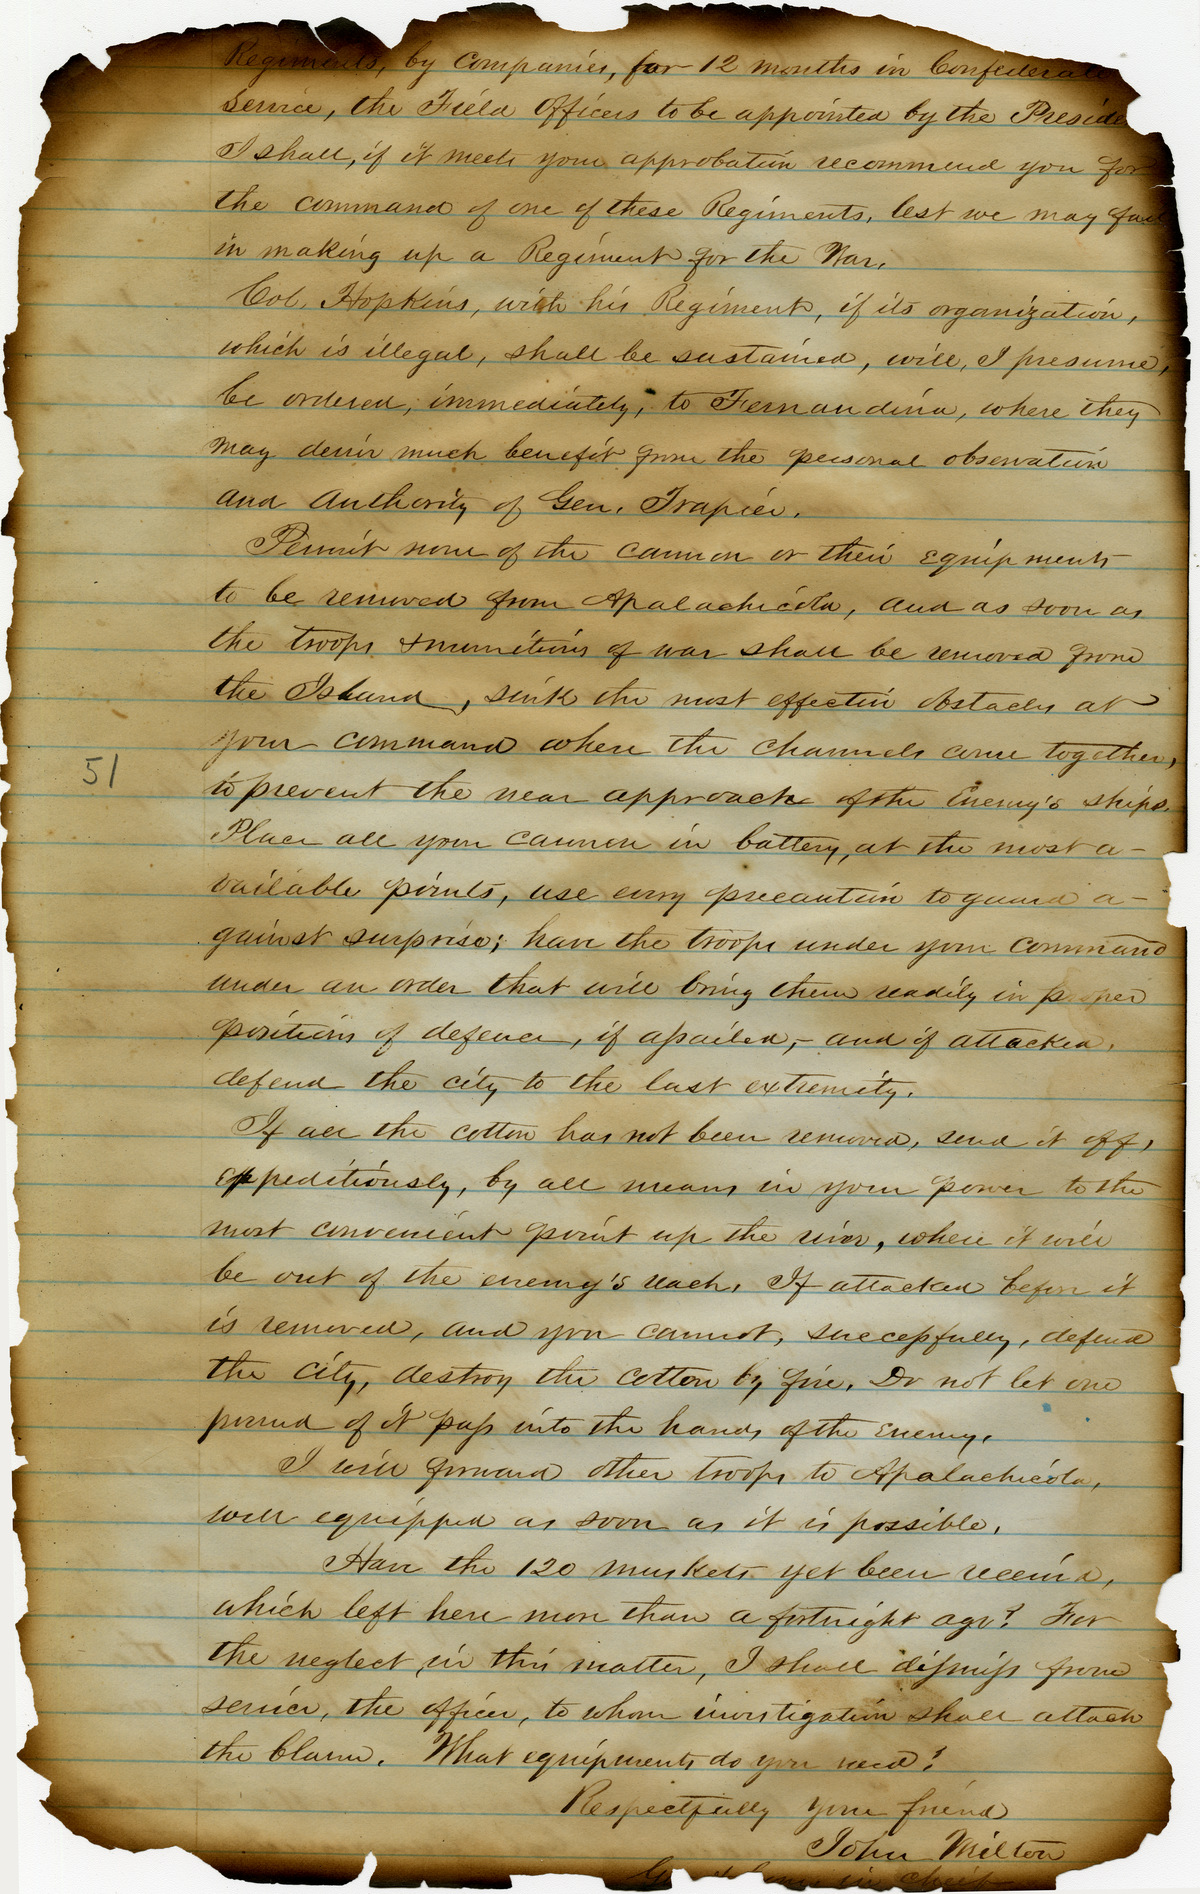 Regiments, by Companies, for 12 months in Confederate
Service, the Field Officers to be appointed by the Preside
I shall, if it meets your approbation recommend you for
the command of one of these Regiments, lest we may fail
in making up a Regiment for the War.
Col. Hopkins, with his Regiment, if its organization,
which is illegal, shall be sustained, will, I presume,
be ordered, immediately, to Fernandina, where they
may deriv much benefit from the personal observation
and Authority of Gen. Trapier.
Permit none of the cannon or their equipments
to be removed from Apalachicola, and as soon as
the troops & munitions of war shall be removed from
the Island, sink the most effective obstacles at
your command where the channels come together,
to prevent the near approach of the Enemy's ships.
Place all your cannon in battery, at the most a-
vailable points, use every precaution to guard a-
51
gainst surprise; have the troops under your command
under an order that will bring them readily in proper
positions of defence, if assailed,- and if attacked,
defend the city to the last extremity.
If all the cotton has not been removed, send it off,
expeditiously, by all means in your power to the
most convenient point up the river, where it will
be out of the enemy's reach. If attacked before it
is removed, and you cannot, successfully, defend
the city, destroy the cotton by fire. Do not let one
pound of it pass into the hands of the Enemy.
I will forward other troops to Apalachicola,
well equipped as soon as it is possible.
Have the 120 muskets yet been received,
which left here more than a fortnight ago? For
the neglect in this matter, I shall dismiss from
service, the officer, to whom investigation shall attach
the blame. What equipments do you need?
Respectfully your friend
John Milton
in chief